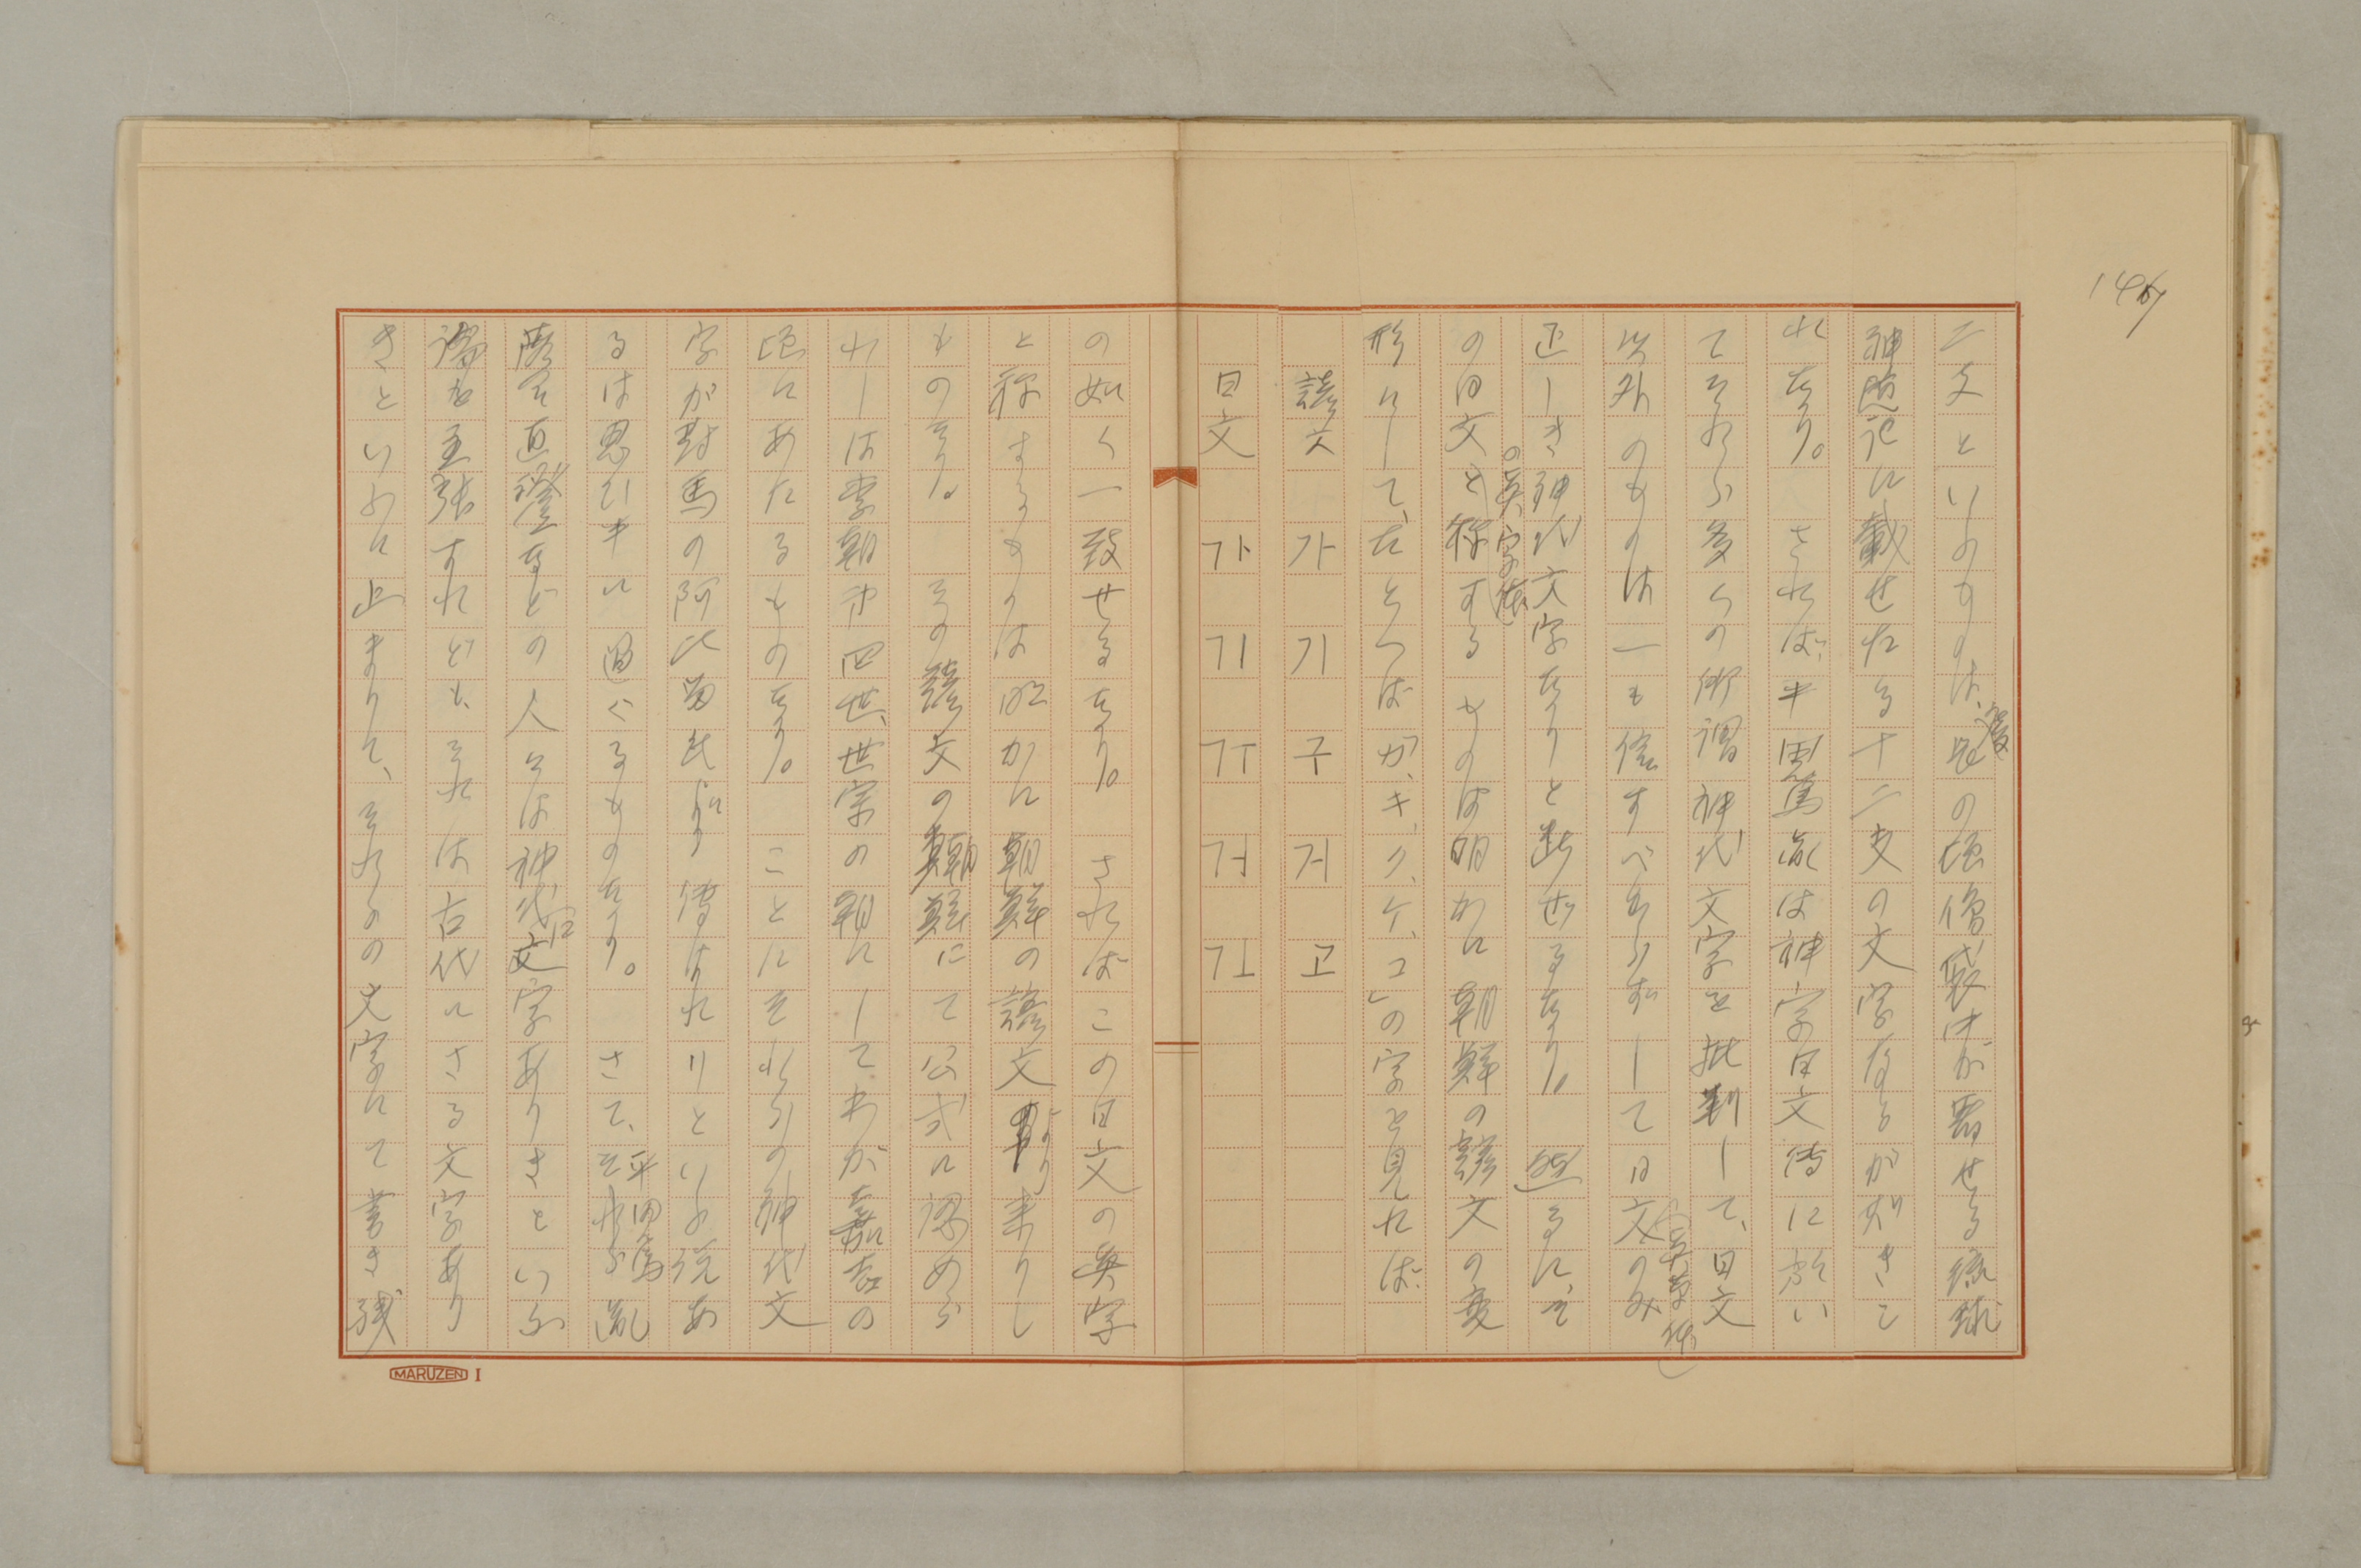 146
二支といふものは、慶長の頃僧袋中が著せる琉球
神道記に載せたる十二支の文字なるが如きこ
れなり。されば、平田篤胤は神字日文伝に於い
てそれら多くの所謂神代文字を批判して、日文
以外のものは一も信ずべからずして日文のみ
(真字体)
正しき神代文字なりと断ぜるなり。然るに、そ
の日文(真字体)と称するものは明かに朝鮮の諺文の変
形にして、たとへば「カ、キ、ク、ケ、コ」の字を見れば
諺文 가 기 구 거 고
日文 ㄱㅏ ㄱㅣ ㄱㅜ ㄱㅓ ㄱㅗ
の如く一致せるなり。さればこの日文の真字
と称するものは明かに朝鮮の諺文より来りし
ものなり。その諺文の朝鮮にて公式に認めら
れしは李朝第四世、世宗の朝にしてわが嘉吉の
頃にあたるものなり。ことにそれらの神代文
字が対馬の阿比留氏より伝はれりといふ説あ
るは思ひ半に過ぐるものなり。さて、平田篤胤
落合直澄などの人々は神代に文字ありきといふ
論を主張すれども、それは古代にさる文字あり
きといふに止まりて、それらの文字にて書き残
MARUZEN I